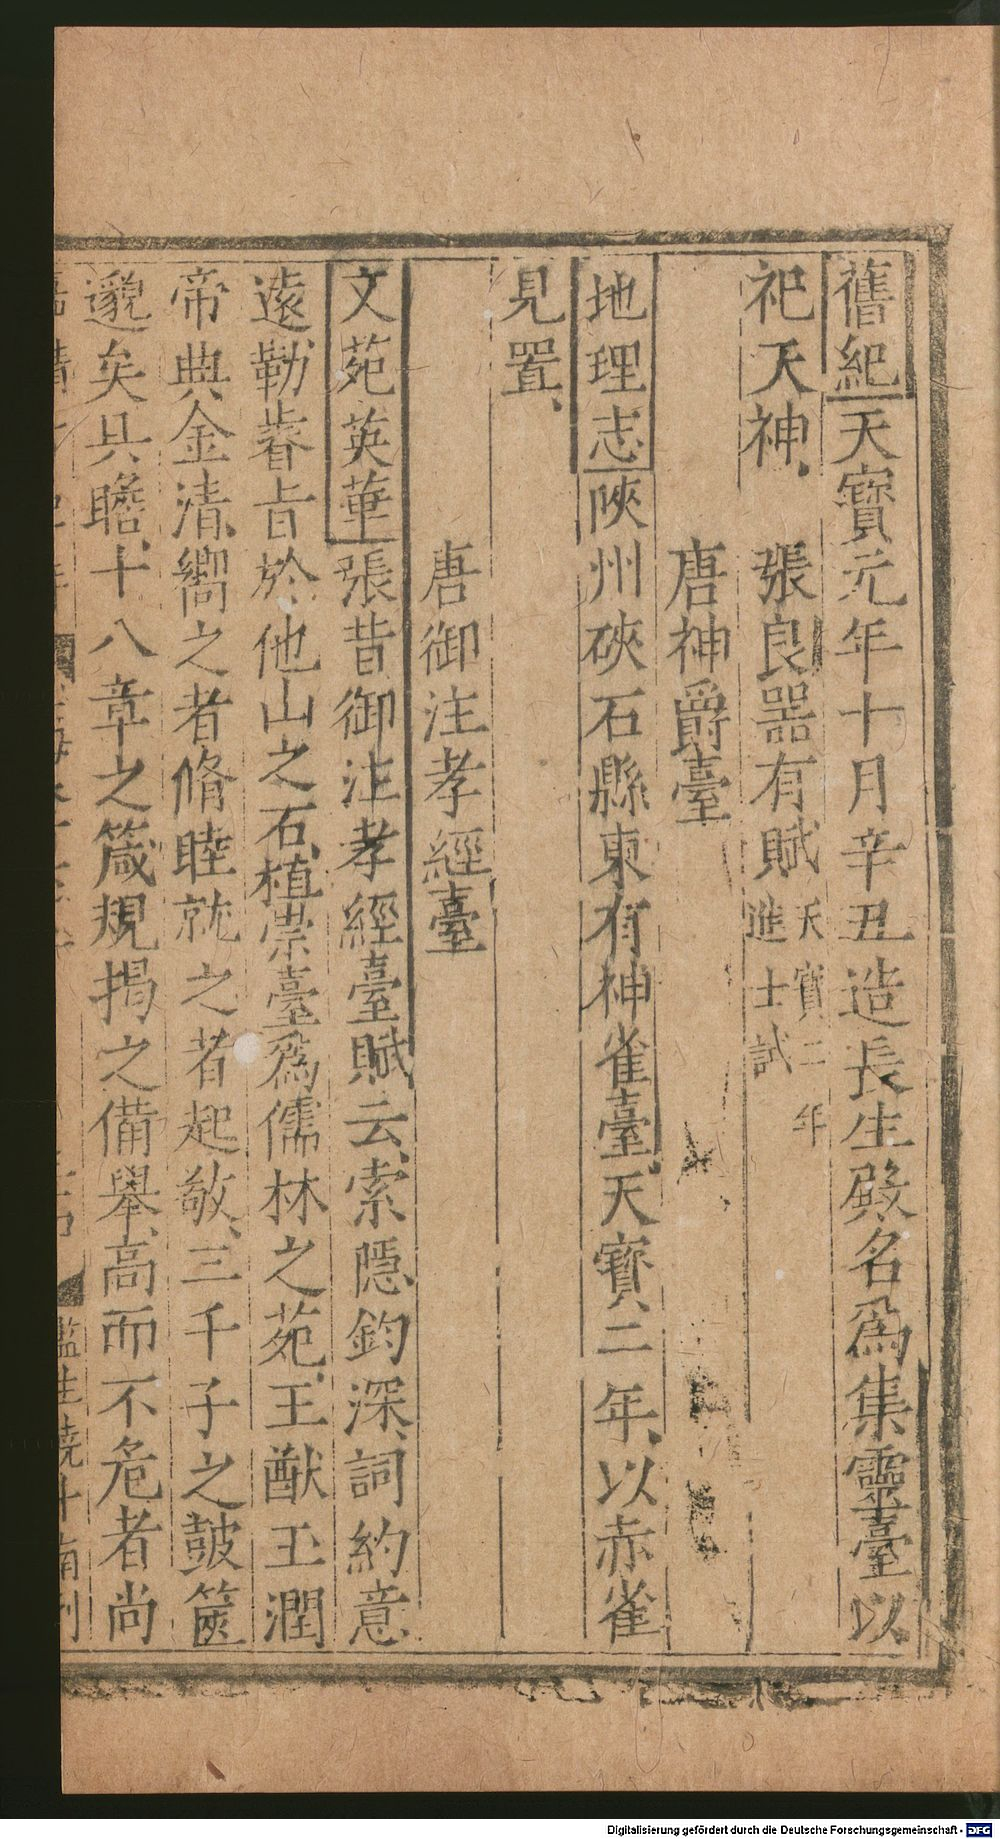 舊紀天寶元年十月辛丑造長生殿名爲集靈臺以
祀天神、　張良器有賦天寶二年進士試
唐神爵臺
地理志陜州硤石縣東有神雀臺、天寶二年、以赤雀
見置、
唐御注孝經臺
文苑英華張昔御注孝經臺賦云、索隱鈞深、詞約意
遠、勒睿旨於他山之石、植崇臺爲儒林之苑、王猷玉潤
帝典金清、嚮之者脩睦、就之者起敬、三千子之皷篋
邈矣具瞻、十八章之箴規揭之備舉、高而不危者尚
監生饒十南刊
Digitalisierung gefördert durch die Deutsche Forschungsgemeinschaft - DFG